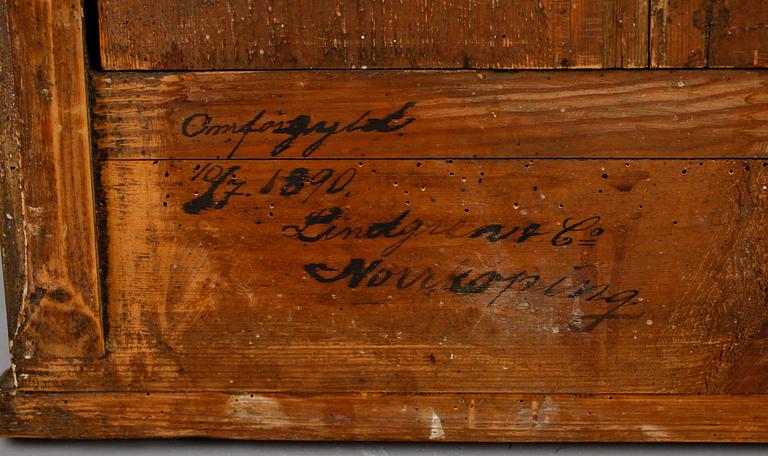 Omförgyld
10/7. 1890.
Lindgren & Co
Norrköping